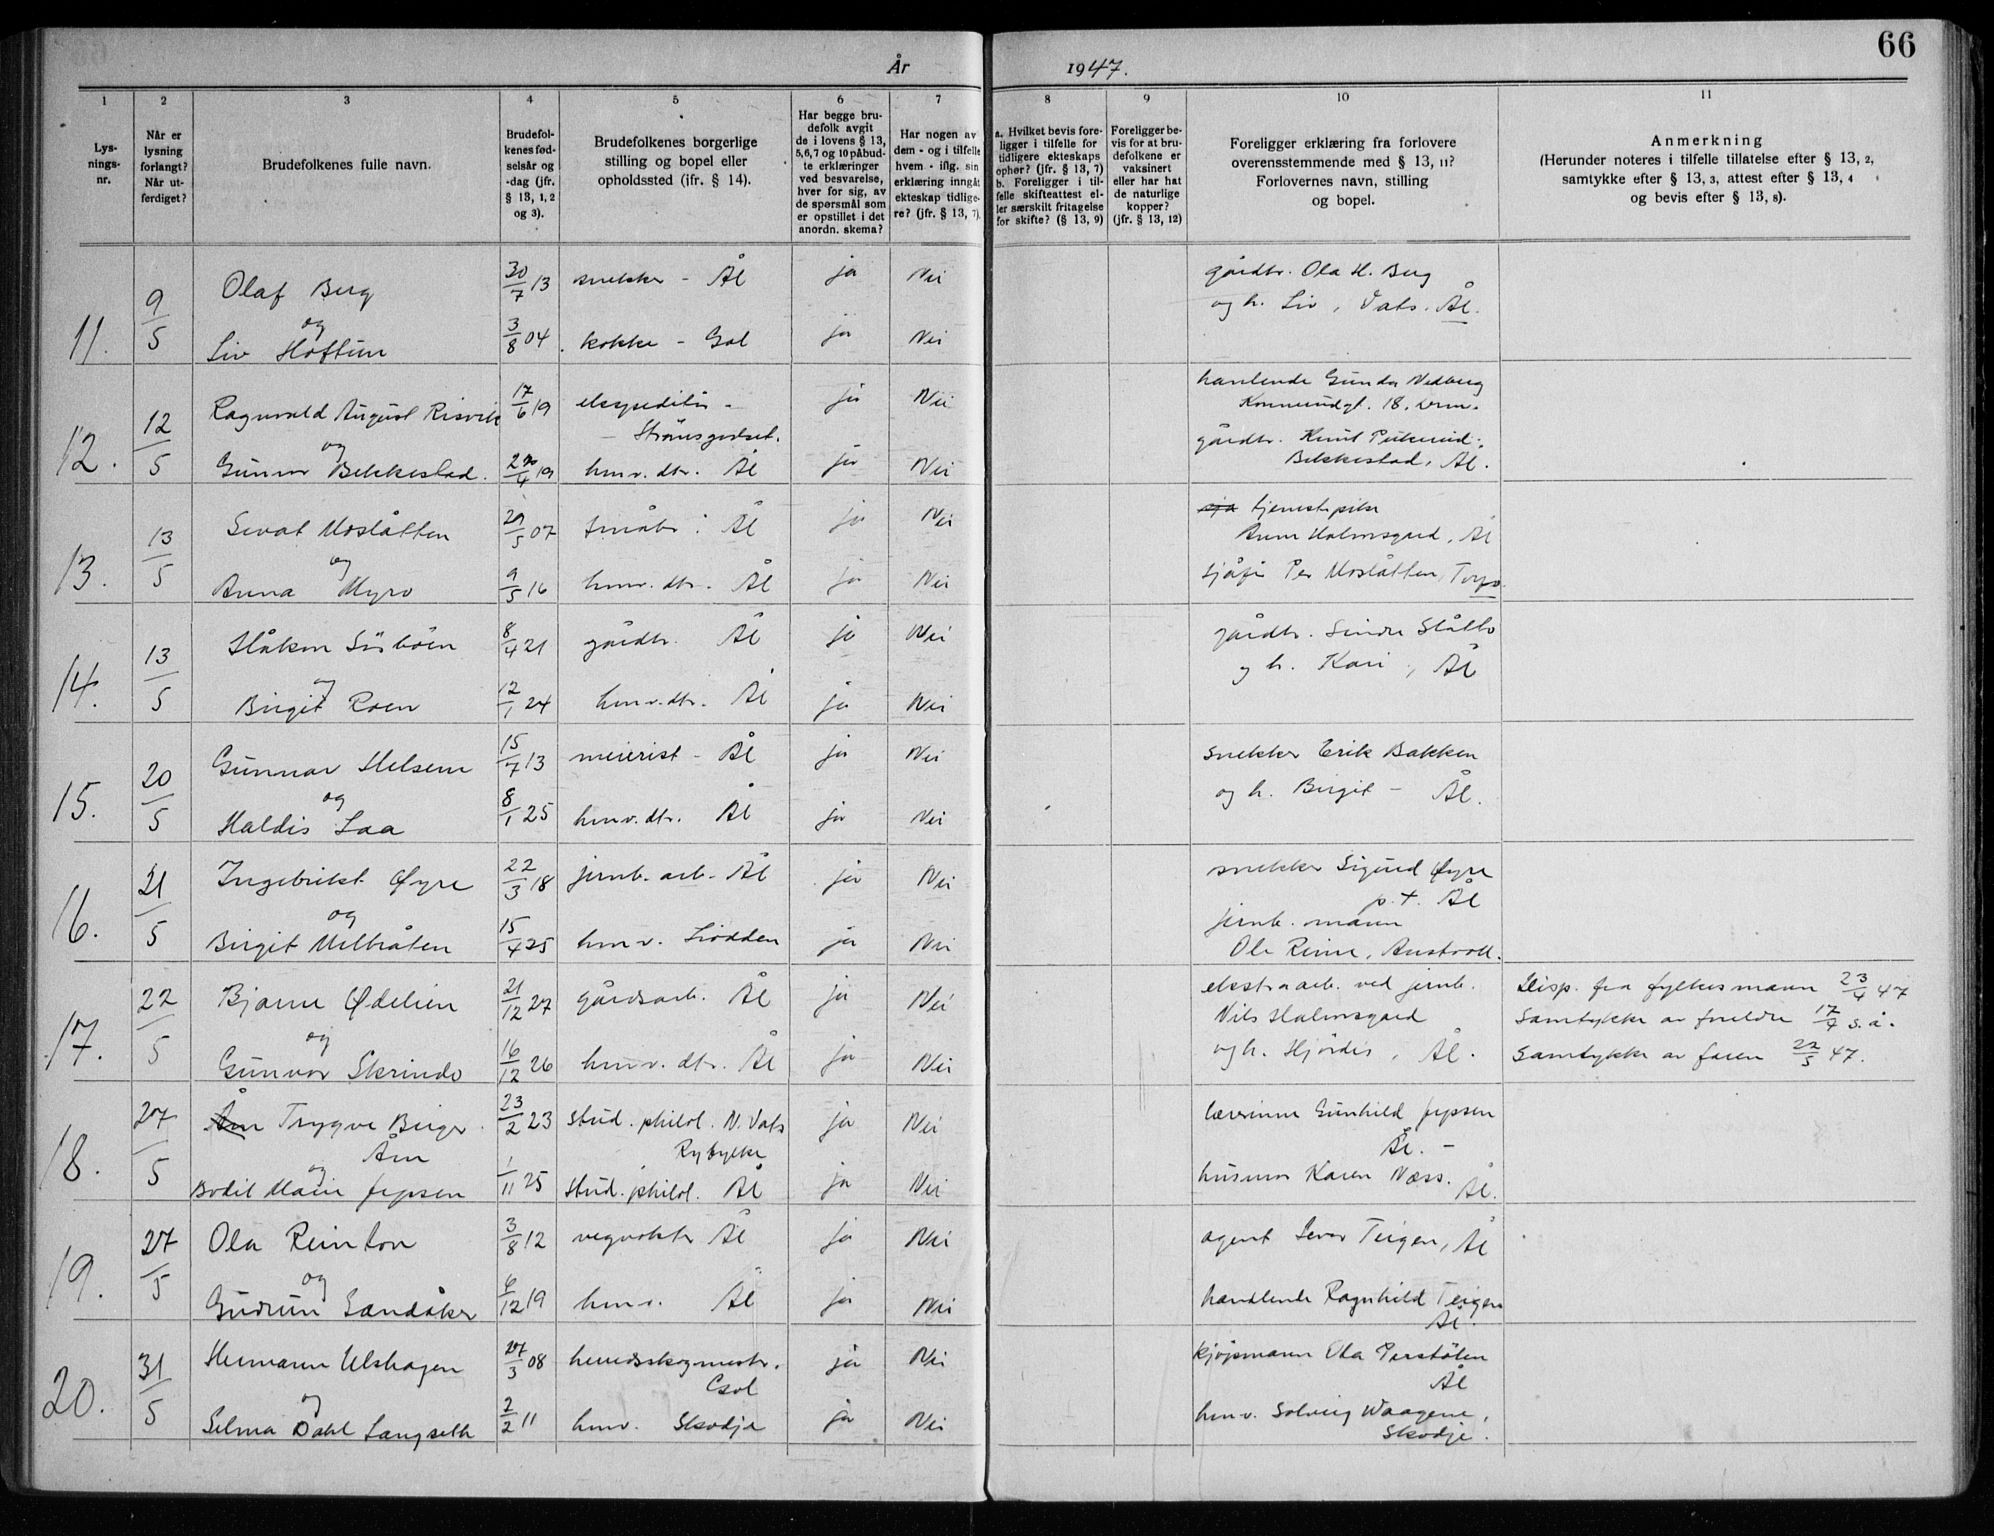 66
År 1947.
1 2 3 4 5 6 7 8 9 10 11
Lys-
nings-
nr.
Når er
lysning
forlangt?
Når ut-
ferdiget?
Brudefolkenes fulle navn.
Brudefol-
kenes fød-
selsår og
-dag (jfr.
§ 13, 1, 2
og 3).
Brudefolkenes borgerlige
stilling og bopel eller
opholdssted (jfr. § 14).
Har begge bru-
defolk avgit
de i lovens § 13,
5, 6, 7 og 10 påbud-
te erklæringer
ved besvarelse,
hver for sig, av
de spørsmål som
er opstillet i det
anordn. skema?
Har nogen av
dem - og i tilfelle
hvem - iflg. sin
erklæring inngåt
ekteskap tidlige-
re? (jfr. § 13, 7).
a. Hvilket bevis fore-
ligger i tilfelle for
tidligere ekteskaps
ophør? (jfr. § 13, 7)
b. Foreligger i til-
felle skifteattest el-
ler særskilt fritagelse
for skifte? (§ 13, 9)
Foreligger be-
vis for at bru-
defolkene er
vaksinert
eller har hat
de naturlige
kopper?
(jfr. § 13, 12)
Foreligger erklæring fra forlovere
overensstemmende med § 13, 11?
Forlovernes navn, stilling
og bopel.
Anmerkning
(Herunder noteres i tilfelle tillatelse efter § 13, 2,
samtykke efter § 13, 3, attest efter § 13, 4
og bevis efter § 13, 8).
11. 9/5 Olaf Berg 30/7 13 snekker - Ål ja Nei gårdbr. Ola H. Berg
og og h. Liv, Vats. Ål.
Liv Hoftun 3/8 04 kokke - Gol ja Nei
12. 12/5 Ragnvald August Risvik 17/6 19 ekspeditør - ja Nei handlende Gunda Nedberg
Strømsgodset. 18. Drm.
og gårdbr. Knut
Gunvor Bekkestad. /4 19 hmv. dtr. Ål ja Nei Bekkestad, Ål.
13. 13/5 Sevat Moslåtten 29/5 07 småbr. Ål ja Nei tjenestepike
og Anne Holmsgard, Ål
Anna Myro 9/5 16 hmv. dtr. Ål ja Nei sjåfør Per Moslåtten, Torpo.
14. 13/5 Håkon 8/4 21 gårdbr. Ål ja Nei gårdbr. Sindre Slåtto
og og h. Kari, Ål
Birgit Roen 12/1 24 hmv. dtr. Ål ja Nei
15. 20/5 Gunnar Helsem 15/7 13 meierist - Ål ja Nei snekker Erik Bakken
og og h. Birgit - Ål.
Haldis Laa 8/1 25 hmv. dtr. Ål ja Nei
16. 21/5 Ingebrikt Øyre 22/3 18 jernb. arb. Ål ja Nei snekker Sigurd Øyre
og p.t. Ål
jernb. mann
Birgit Melbråten 15/4 25 hmv. Liodden ja Nei Ole Rime,
17. 22/5 Bjarne Ødelien 21/12 27 gårdsarb. Ål ja Nei ekstraarb. ved jernb. Disp. fra fylkesmann 23/4 47
og Nils Holmsgard Samtykke av foreldre 17/4 s.å.
Gunvor Skrindo 16/12 26 hmv. dtr. Ål ja Nei og h. Hjördis, Ål. Samtykke av faren 22/5 47.
18. 27/5 Åm Trygve Birger 23/2 23 stud. philol. N. Vats ja Nei lærerinne Gunhild Jepsen
Åm Ål. -
og
Bodil Marie Jepsen 1/11 25 stud. philol. Ål ja Nei husmor Karen Næss. Ål.
19. 27/5 Ola Reinton 3/8 12 vegvokter Ål ja Nei agent Sevat Teigen, Ål
og
Gudrun Sandåker 6/12 19 hmv. Ål ja Nei handlende Ragnhild Teigen
Ål.
20. 31/5 Hermann Ulshagen 27/3 08 herredsskogmestr. ja Nei kjøpmann Ola Perstölen
Gol Ål
og
Selma Dahl Langseth 2/2 11 hmv. Skodje ja Nei hmv. Solveig Waagene,
Skodje.